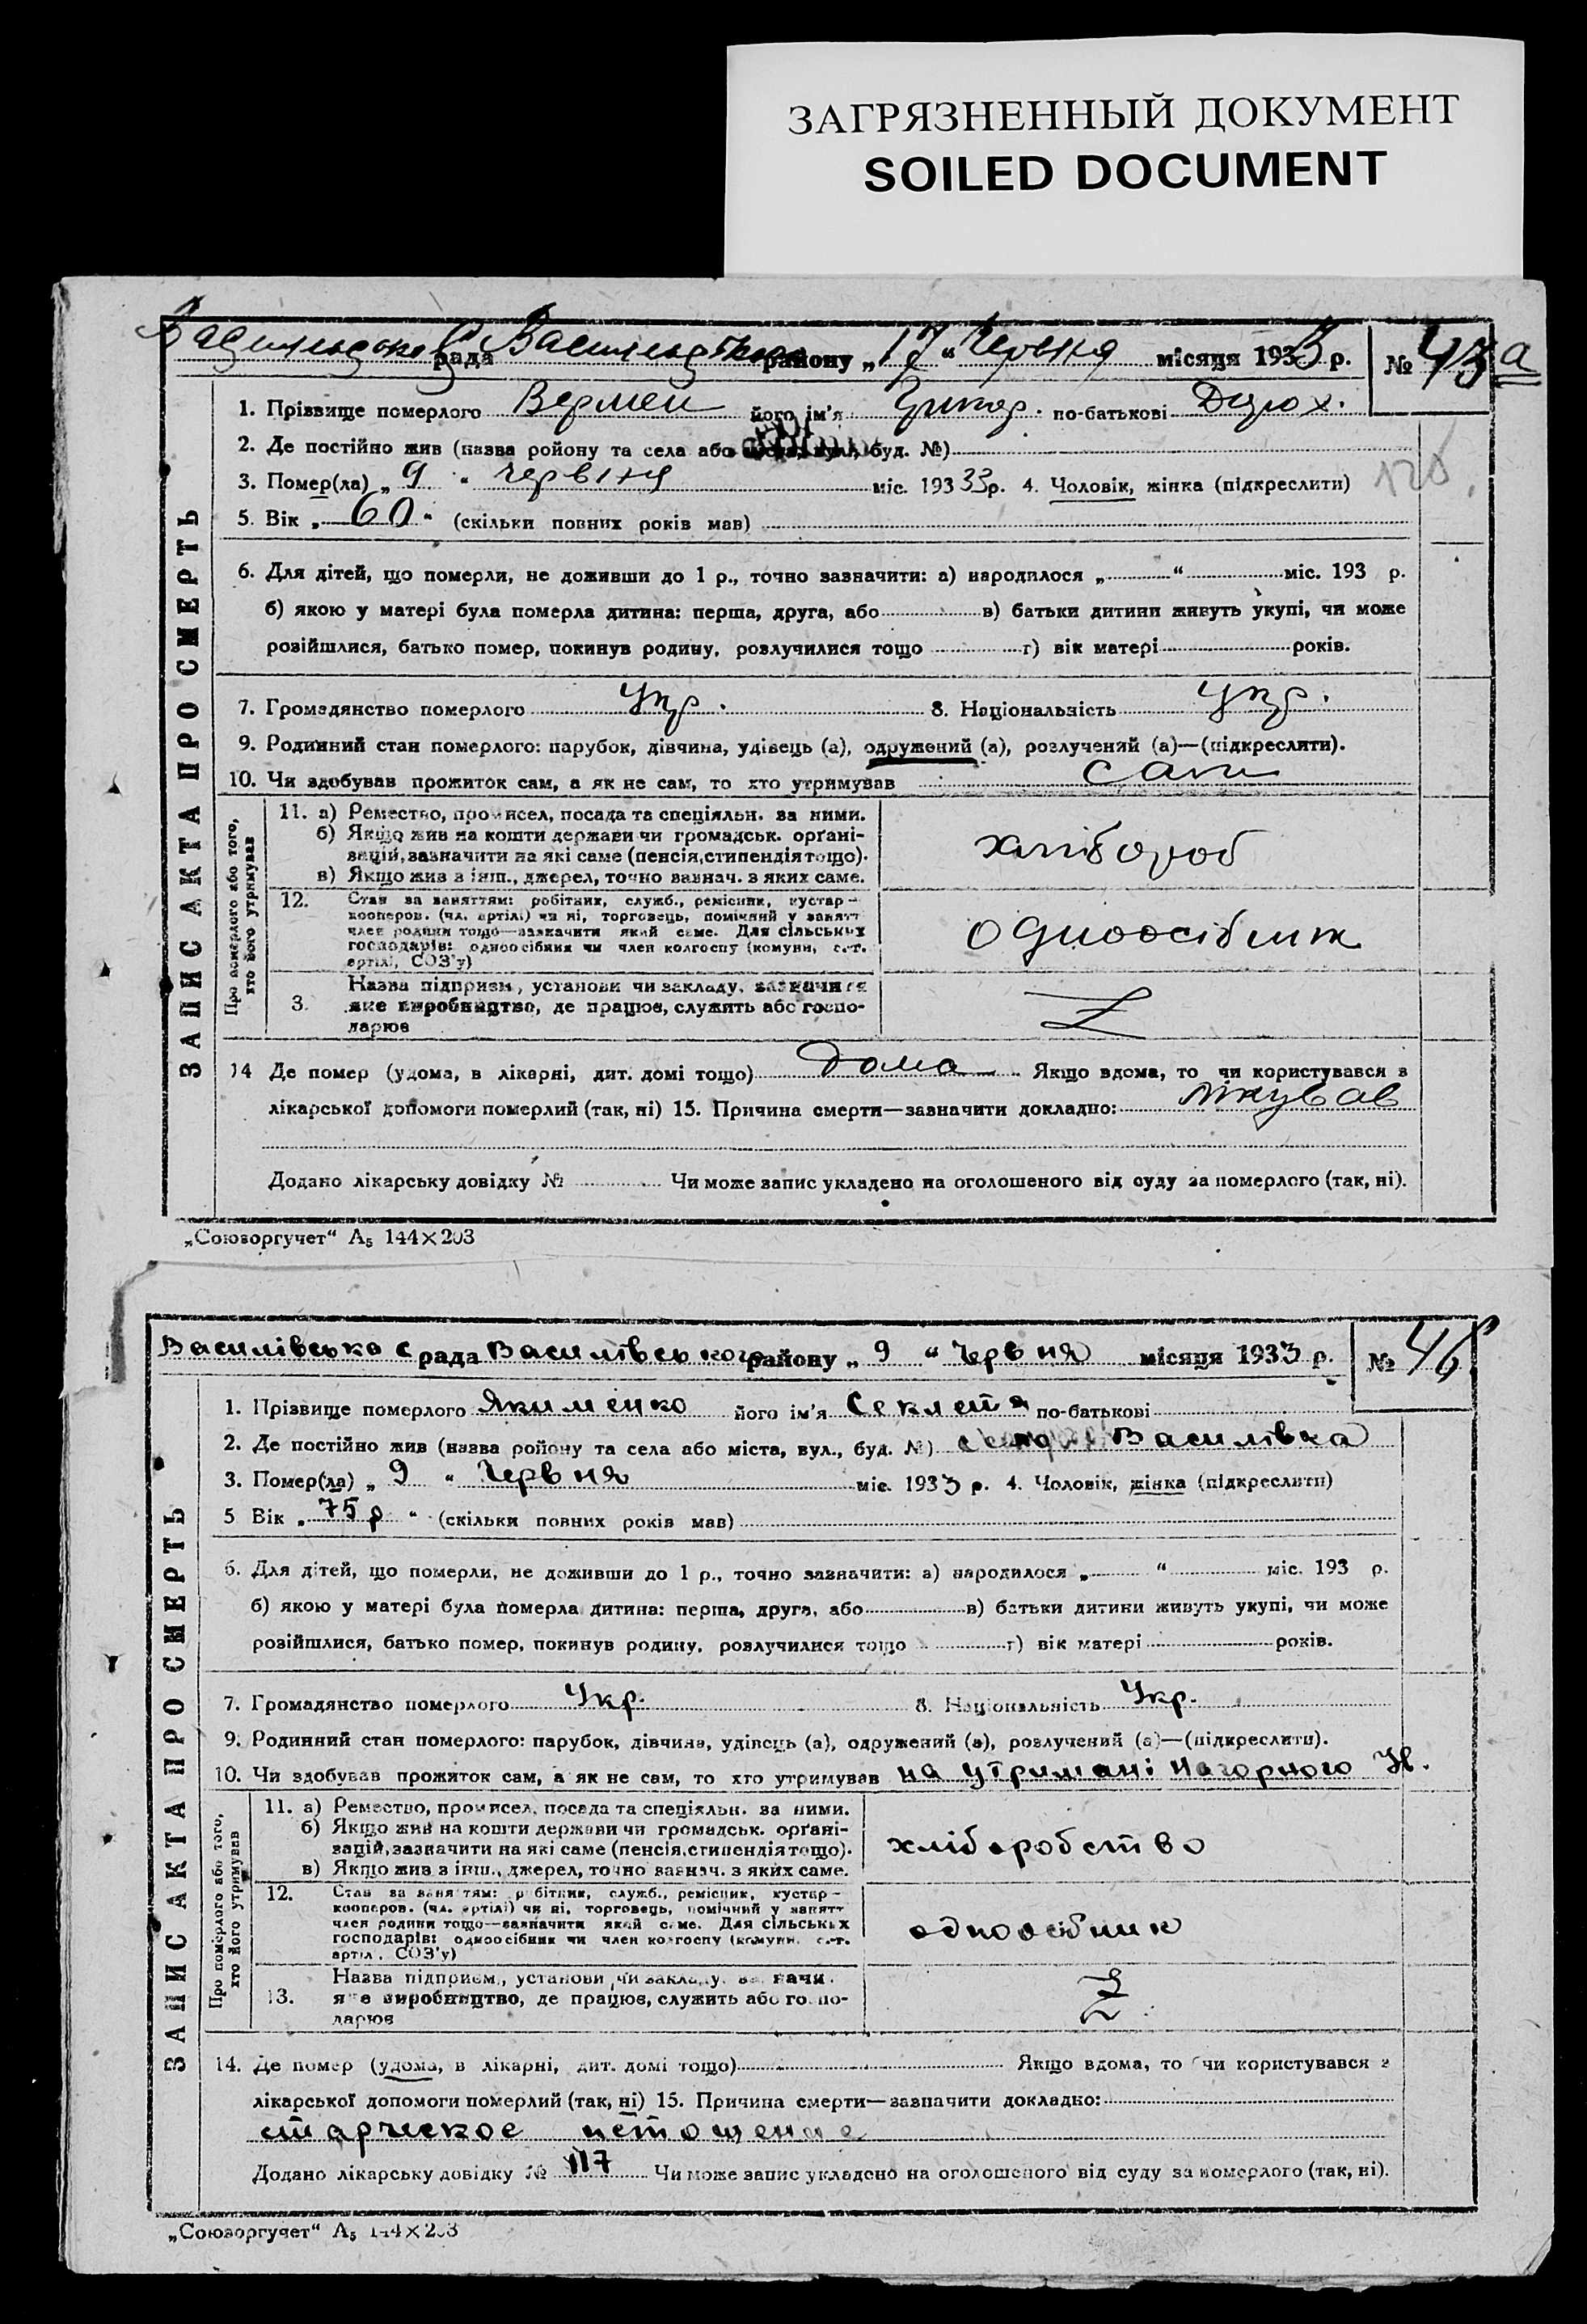 ЗАГРЯЗНЕННЫЙ ДОКУМЕНТ
SOILED DOCUMENT
рада району „17“ Червня місяця 1933 р. № 43а
1. Прізвище померлого його ім'я по-батькові
2. Де постійно жив (назва району та села або буд. №)
3. Помер(ла) „9“ червня міс. 1933 р. 4. Чоловік, жінка (підкреслити)
5. Вік „60“ (скільки повних років мав)
6. Для дітей, що померли, не доживши до 1 р., точно зазначити: а) народилося „ “ міс. 193 р.
б) якою у матері була померла дитина: перша, друга, або в) батьки дитини живуть укупі, чи може
розійшлися, батько помер, покинув родину, розлучилися тощо г) вік матері років.
7. Громадянство померлого Укр. 8. Національність Укр.
9. Родинний стан померлого: парубок, дівчина, удівець (а), одружений (а), розлучений (а)—(підкреслити).
10. Чи здобував прожиток сам, а як не сам, то хто утримував сам
Про померлого або того, хто його утримував
11. а) Ремество, промисел, посада та спеціяльн. за ними.
б) Якщо жив на кошти держави чи громадськ. організацій, зазначити на які саме (пенсія, стипендія тощо).
в) Якщо жив з інш., джерел, точно зазнач. з яких саме.
хлібороб
12. Стан за заняттям: робітник, служб., ремісник, кустар-
кооперов. (чл. артілі) чи ні, торговець, помічний у занятт
член родини тощо—зазначити який саме. Для сільських
господарів: одноосібник чи член колгоспу (комуни, с.-г.
артілі, СОЗ'у)
одноосібник
3. Назва підприєм., установи чи закладу, зазначити
яке виробництво, де працює, служить або госпо-
дарює
14 Де помер (удома, в лікарні, дит. домі тощо) дома Якщо вдома, то чи користувався з
лікарської допомоги померлий (так, ні) 15. Причина смерти—зазначити докладно: лікував
Додано лікарську довідку № Чи може запис укладено на оголошеного від суду за померлого (так, ні).
ЗАПИС АКТА ПРО СМЕРТЬ
„Союзоргучет“ А₅ 144×203
Василівська с рада Василівського району „9“ Червня місяця 1933 р. № 46
1. Прізвище померлого Якименко його ім'я Секлета по-батькові
2. Де постійно жив (назва району та села або міста, вул., буд. №) Василівка
3. Помер(ла) „9“ Червня міс. 1933 р. 4. Чоловік, жінка (підкреслити)
5 Вік „75 р“ (скільки повних років мав)
6. Для дітей, що померли, не доживши до 1 р., точно зазначити: а) народилося „ “ міс. 193 р.
б) якою у матері була померла дитина: перша, друга, або в) батьки дитини живуть укупі, чи може
розійшлися, батько помер, покинув родину, розлучилися тощо г) вік матері років.
7. Громадянство померлого Укр. 8. Національність Укр.
9. Родинний стан померлого: парубок, дівчина, удівець (а), одружений (а), розлучений (а)—(підкреслити).
10. Чи здобував прожиток сам, а як не сам, то хто утримував на утримані Нагорного Н.
Про померлого або того, хто його утримував
11. а) Ремество, промисел, посада та спеціяльн. за ними.
б) Якщо жив на кошти держави чи громадськ. організацій, зазначити на які саме (пенсія, стипендія тощо).
в) Якщо жив з інш., джерел, точно зазнач. з яких саме.
хліборобство
12. Стан за заняттям: робітник, служб., ремісник, кустар-
кооперов. (чл. артілі) чи ні, торговець, помічний у занятт
член родини тощо—зазначити який саме. Для сільських
господарів: одноосібник чи член колгоспу (комуни, с.-г.
артіл, СОЗ'у)
одноосібник
13. Назва підприєм., установи чи закладу, зазначи.
яке виробництво, де працює, служить або госпо-
дарює
14. Де помер (удома, в лікарні, дит. домі тощо) Якщо вдома, то чи користувався з
лікарської допомоги померлий (так, ні) 15. Причина смерти—зазначити докладно:
старческое истощение
Додано лікарську довідку № 117 Чи може запис укладено на оголошеного від суду за померлого (так, ні).
ЗАПИС АКТА ПРО СМЕРТЬ
„Союзоргучет“ А₅ 144×203